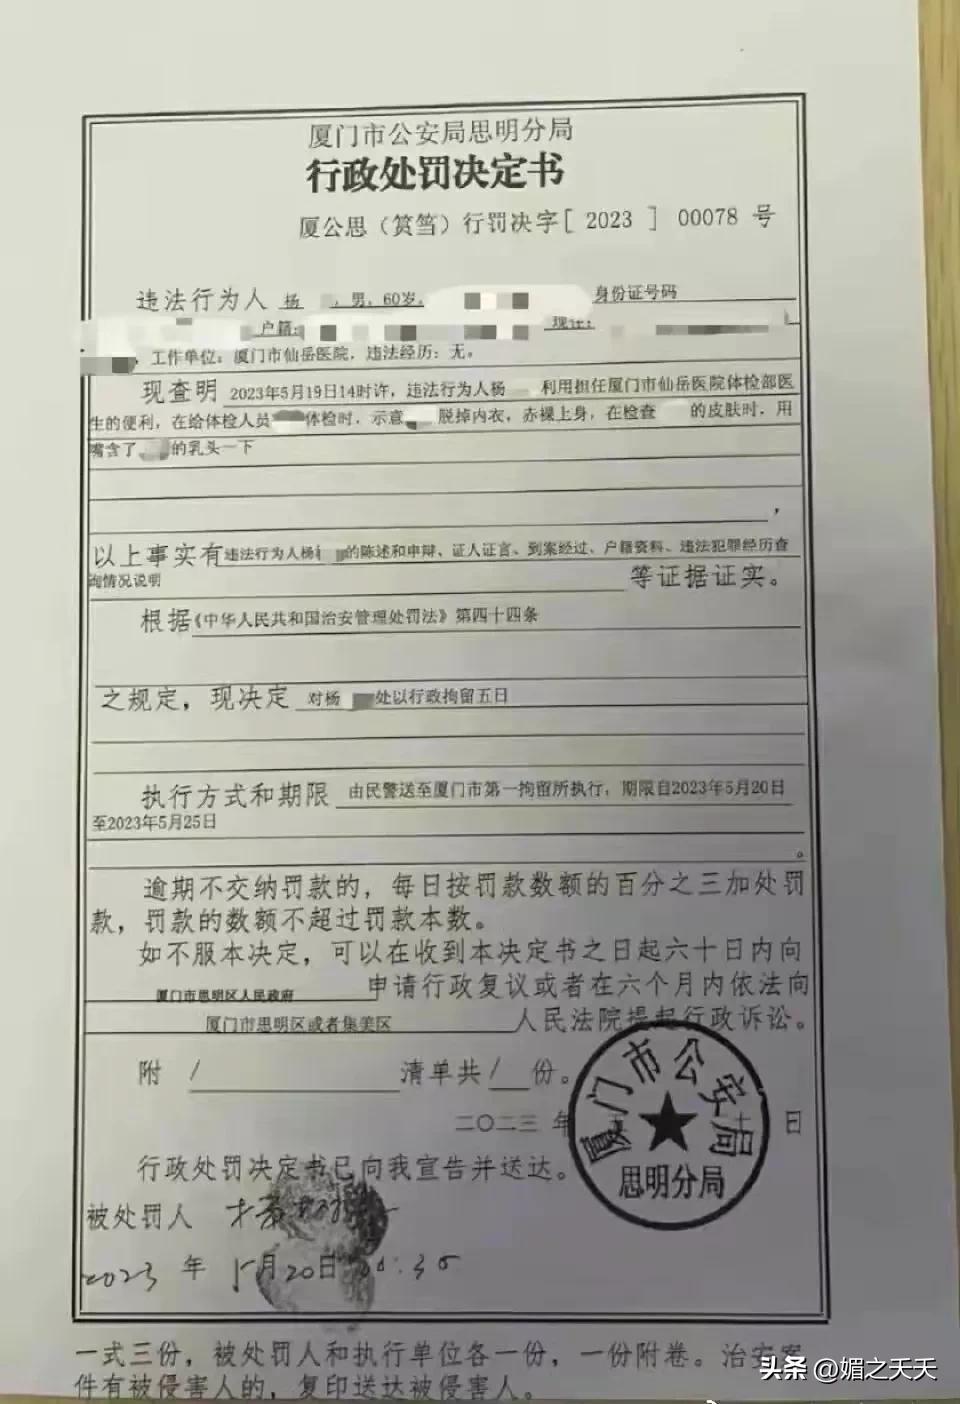 厦门市公安局思明分局
行政处罚决定书
厦公思（筼筜）行罚决字［ 2023 ］ 00078 号
违法行为人 杨 ，男，60岁， 身份证号码
户籍: 现住:
，工作单位：厦门市仙岳医院，违法经历：无。
现查明 2023年5月19日14时许，违法行为人杨 利用担任厦门市仙岳医院体检部医
生的便利，在给体检人员 体检时，示意 脱掉内衣，赤裸上身，在检查 的皮肤时，用
嘴含了 的乳头一下
，
以上事实有 违法行为人杨 的陈述和申辩、证人证言、到案经过、户籍资料、违法犯罪经历查
询情况说明 等证据证实。
根据《中华人民共和国治安管理处罚法》第四十四条
之规定，现决定 对杨 处以行政拘留五日
执行方式和期限 由民警送至厦门市第一拘留所执行，期限自2023年5月20日
至2023年5月25日
。
逾期不交纳罚款的，每日按罚款数额的百分之三加处罚
款，罚款的数额不超过罚款本数。
如不服本决定，可以在收到本决定书之日起六十日内向
厦门市思明区人民政府 申请行政复议或者在六个月内依法向
厦门市思明区或者集美区 人民法院提起行政诉讼。
附 / 清单共 / 份。
二〇二三 年 日
厦门市公安局
思明分局
行政处罚决定书已向我宣告并送达。
被处罚人
2023 年 5月20日
一式三份，被处罚人和执行单位各一份，一份附卷。治安案
件有被侵害人的，复印送达被侵害人。
头条 @媚之夭夭